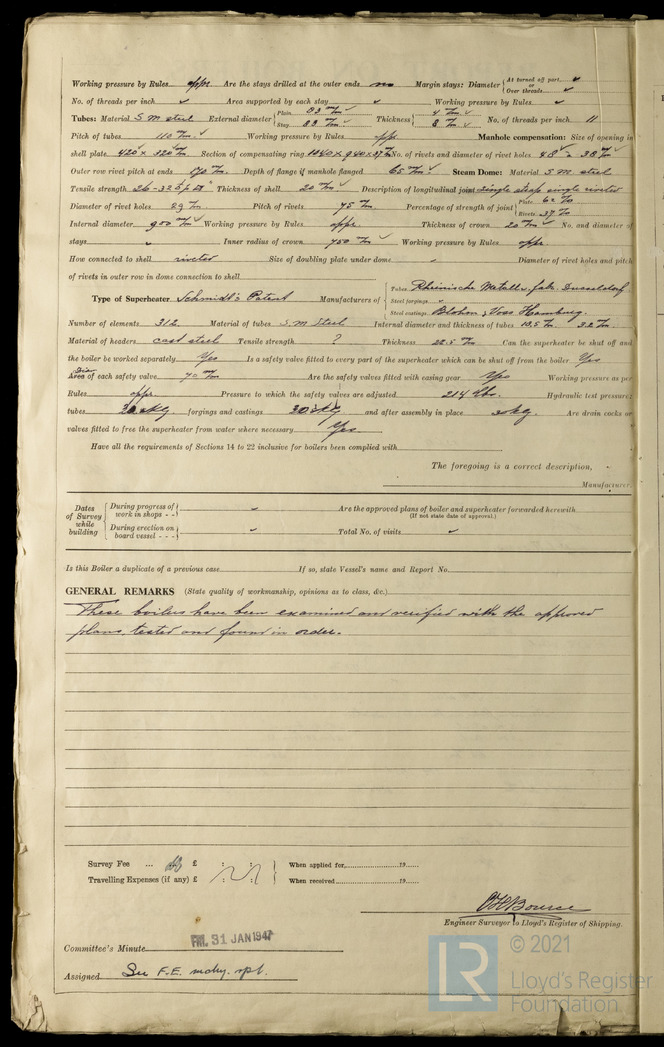 Working pressure by Rules appr. Are the stays drilled at the outer ends no Margin stays: Diameter { At turned off part, ✓ or Over threads ✓
No. of threads per inch ✓ Area supported by each stay ✓ Working pressure by Rules ✓
Tubes: Material S M steel External diameter { Plain 83 m/m ✓ Stay 83 m/m ✓ Thickness { 4 m/m ✓ 8 m/m ✓ No. of threads per inch 11
Pitch of tubes 110 m/m ✓ Working pressure by Rules appr. Manhole compensation: Size of opening in
shell plate 420 x 320 m/m Section of compensating ring No. of rivets and diameter of rivet holes 48 a 38 m/m
Outer row rivet pitch at ends 170 m/m Depth of flange if manhole flanged 65 m/m ✓ Steam Dome: Material S M steel
Tensile strength Thickness of shell 20 m/m ✓ Description of longitudinal joint single strap single riveted
Diameter of rivet holes 29 m/m Pitch of rivets 75 m/m Percentage of strength of joint { Plate 62 % Rivets 37 %
Internal diameter 900 m/m ✓ Working pressure by Rules appr. Thickness of crown 20 m/m ✓ No. and diameter of
stays Inner radius of crown 750 m/m ✓ Working pressure by Rules appr.
How connected to shell riveted Size of doubling plate under dome - Diameter of rivet holes and pitch
of rivets in outer row in dome connection to shell
Type of Superheater Schmidt's Patent Manufacturers of { Tubes Rheinische Metallw. fabr. Dusseldorf
Steel forgings
Steel castings Blohm & Voss Hamburg.
Number of elements 312 Material of tubes S.M Steel Internal diameter and thickness of tubes 3.2 m/m
Material of headers cast steel Tensile strength ? Thickness 22.5 m/m Can the superheater be shut off and
the boiler be worked separately Yes Is a safety valve fitted to every part of the superheater which can be shut off from the boiler Yes
Dia Area of each safety valve 70 m/m Are the safety valves fitted with easing gear Yes Working pressure as per
Rules appr. Pressure to which the safety valves are adjusted 214 lbs. Hydraulic test pressure:
tubes forgings and castings and after assembly in place 30 kg. Are drain cocks or
valves fitted to free the superheater from water where necessary Yes
Have all the requirements of Sections 14 to 22 inclusive for boilers been complied with
The foregoing is a correct description,
Manufacturer.
Dates of Survey while building { During progress of work in shops - - ✓ Are the approved plans of boiler and superheater forwarded herewith (If not state date of approval.)
During erection on board vessel - - - ✓ Total No. of visits ✓
Is this Boiler a duplicate of a previous case If so, state Vessel's name and Report No.
GENERAL REMARKS (State quality of workmanship, opinions as to class, &c.)
These boilers have been examined and verified with the approved
plans, tested and found in order.
Survey Fee ... £ : : When applied for, 19
Travelling Expenses (if any) £ : : When received 19
Engineer Surveyor to Lloyd's Register of Shipping.
Committee's Minute FRI. 31 JAN 1947
Assigned See F.E. mchy. rpt.
LR © 2021
Lloyd's Register
Foundation.